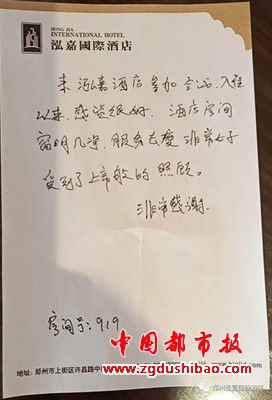 HONG JIA
INTERNATIONAL HOTEL
泓嘉國際酒店
来泓嘉酒店参加会议,入住
以来,感觉很好。酒店房间
窗明几净,服务态度非常好
受到了上帝般的照顾。
非常感谢
房间号:919
中国都市报
www.zgdushibao.com
地址:郑州市上街区许昌路中
郑州泓嘉国际酒店